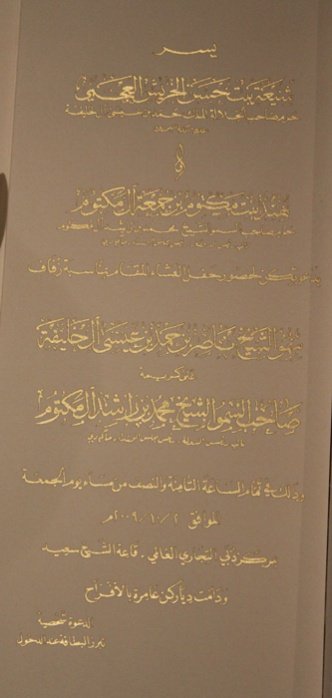 يسر
شيعة بنت حسن الخريش العجمي
حرم صاحب الجلالة الملك حمد بن عيسى آل خليفة
و
هند بنت مكتوم بن جمعة آل مكتوم
حرم صاحب السمو الشيخ محمد بن راشد آل مكتوم
دعوتكن لحضور حفل العشاء المقام بمناسبة زفاف
سمو الشيخ ناصر بن حمد بن عيسى آل خليفة
على كريمة
صاحب السمو الشيخ محمد بن راشد آل مكتوم
نائب رئيس الدولة، رئيس مجلس الوزراء، حاكم دبي
وذلك في تمام الساعة الثامنة والنصف من مساء يوم الجمعة
الموافق ٢٠٠٩/١٠/٢م
بمركز دبي التجاري العالمي، قاعة الشيخ سعيد
ودامت دياركن عامرة بالأفراح
الدعوة شخصية
تبرز البطاقة عند الدخول